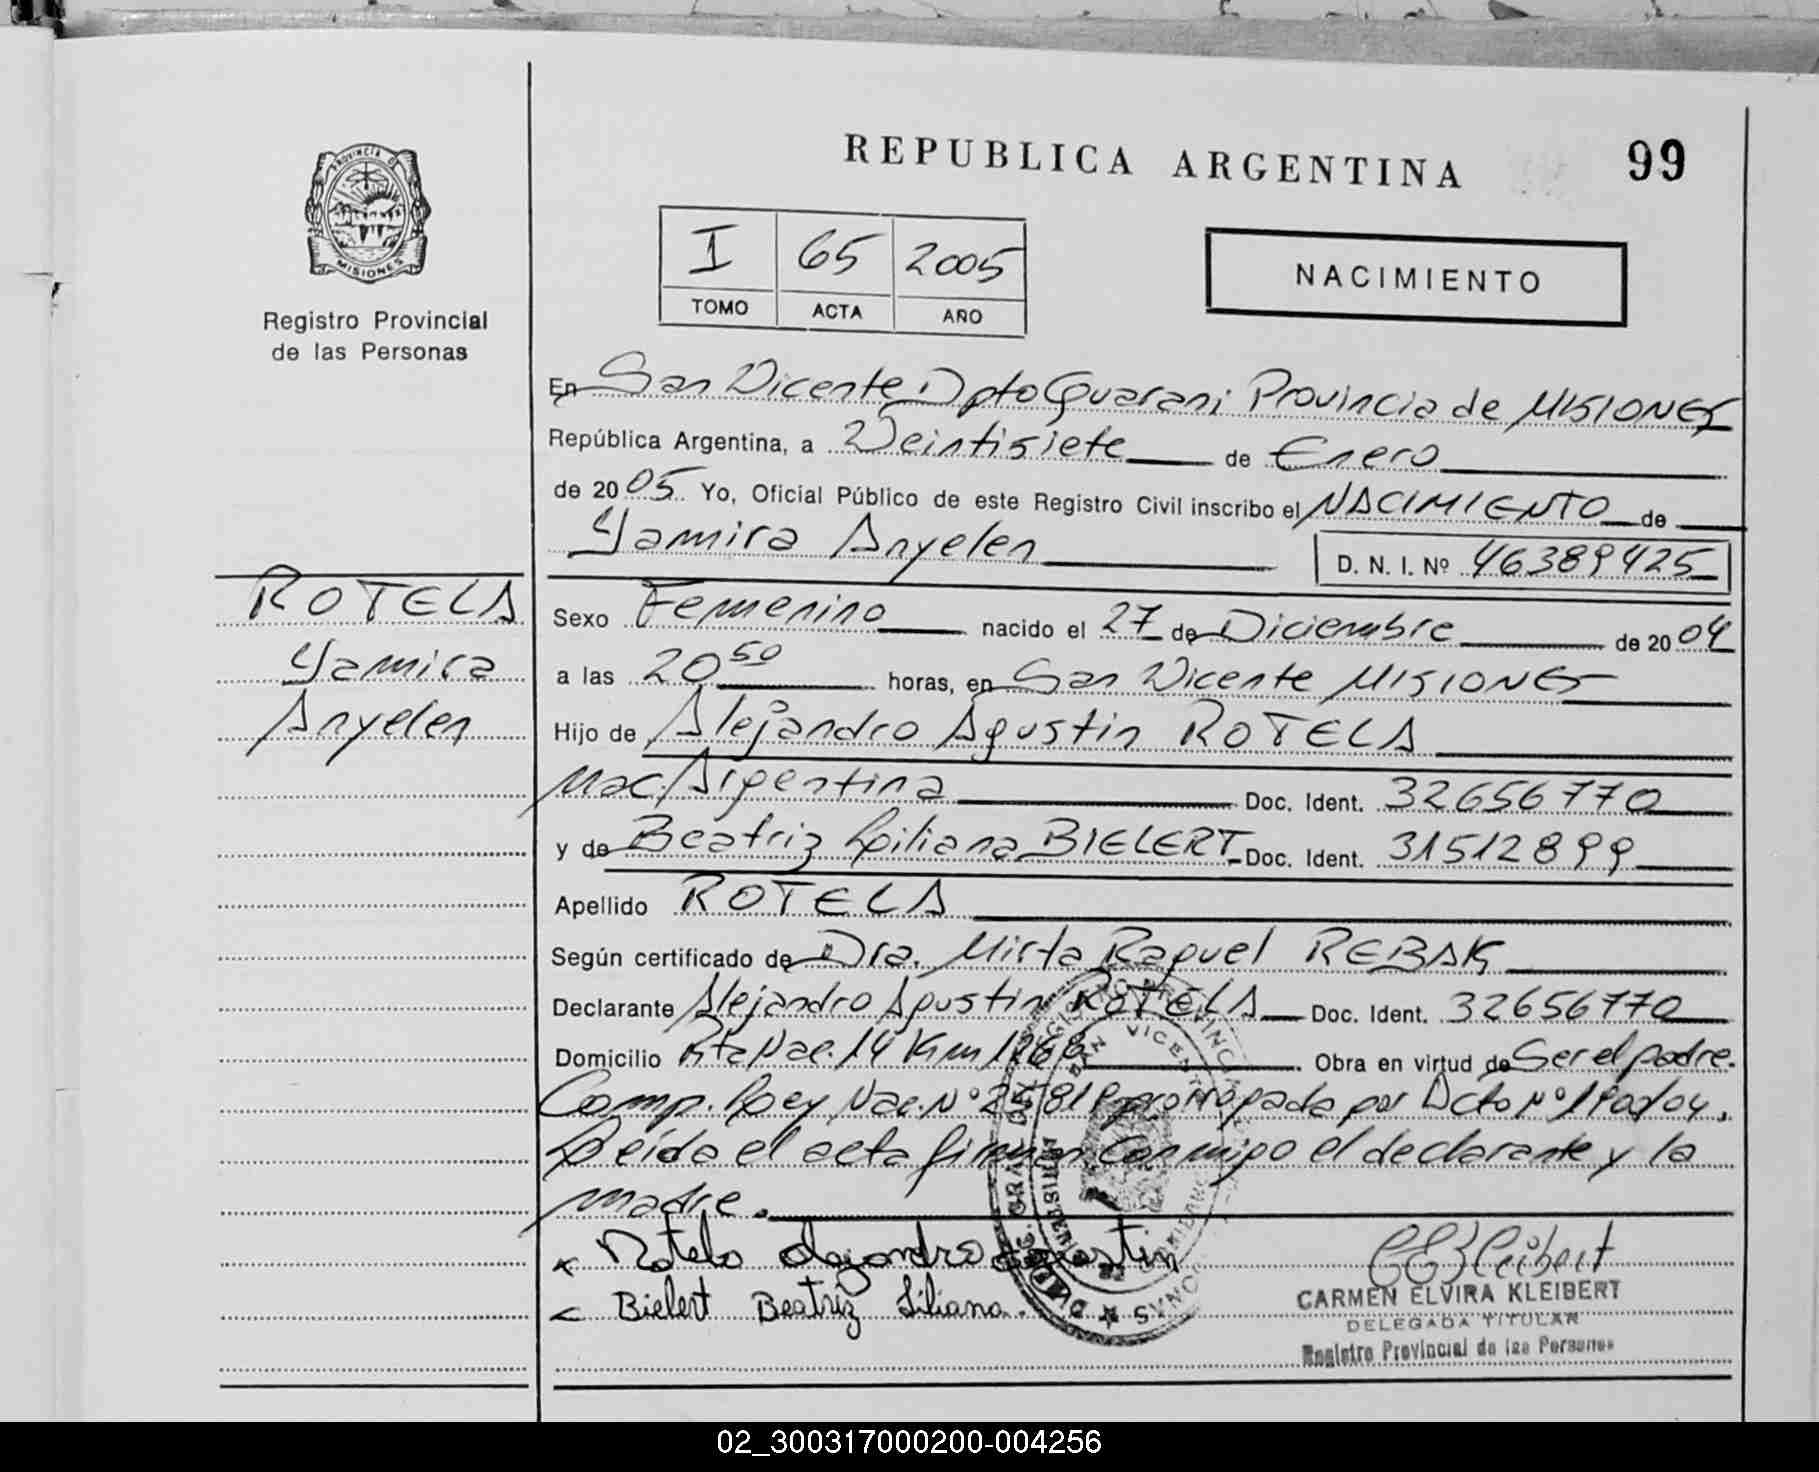 REPUBLICA ARGENTINA 99
PROVINCIA DE MISIONES
Registro Provincial
de las Personas
I 65 2005
TOMO ACTA AÑO
NACIMIENTO
En San Vicente Dpto Guarani Provincia de MISIONES
República Argentina, a Veintisiete de Enero
de 2005 Yo, Oficial Público de este Registro Civil inscribo el NACIMIENTO de
Yamira Anyelen D. N. I. Nº 46389425
ROTELA
Yamira
Anyelen
Sexo Femenino nacido el 27 de Diciembre de 2004
a las 20 50 horas, en San Vicente MISIONES
Hijo de Alejandro Agustin ROTELA
Nac. Argentina Doc. Ident. 32656770
y de Beatriz Liliana BIELERT Doc. Ident. 31512899
Apellido ROTELA
Según certificado de Dra. Mirta Raquel REBAK
Declarante Alejandro Agustin ROTELA Doc. Ident. 32656770
Domicilio Rta Nac. 14 Km 1268 Obra en virtud de Ser el padre.
Comp. Ley Nac. Nº por Dcto Nº
Leída el acta firman conmigo el declarante y la
madre.
x Rotela Alejandro Agustin
Bielert Beatriz Liliana.
CARMEN ELVIRA KLEIBERT
DELEGADA TITULAR
Registro Provincial de las Personas
SAN VICENTE
02_300317000200-004256